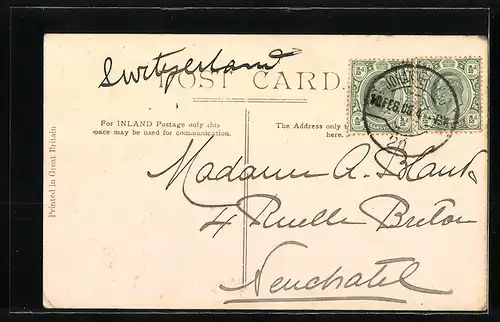 Switzerland
POST CARD.
For INLAND Postage only this
space may be used for communication.
The Address only
here.
Printed in Great Britain
Madame A.
4 Ruelle Breton
Neuchatel